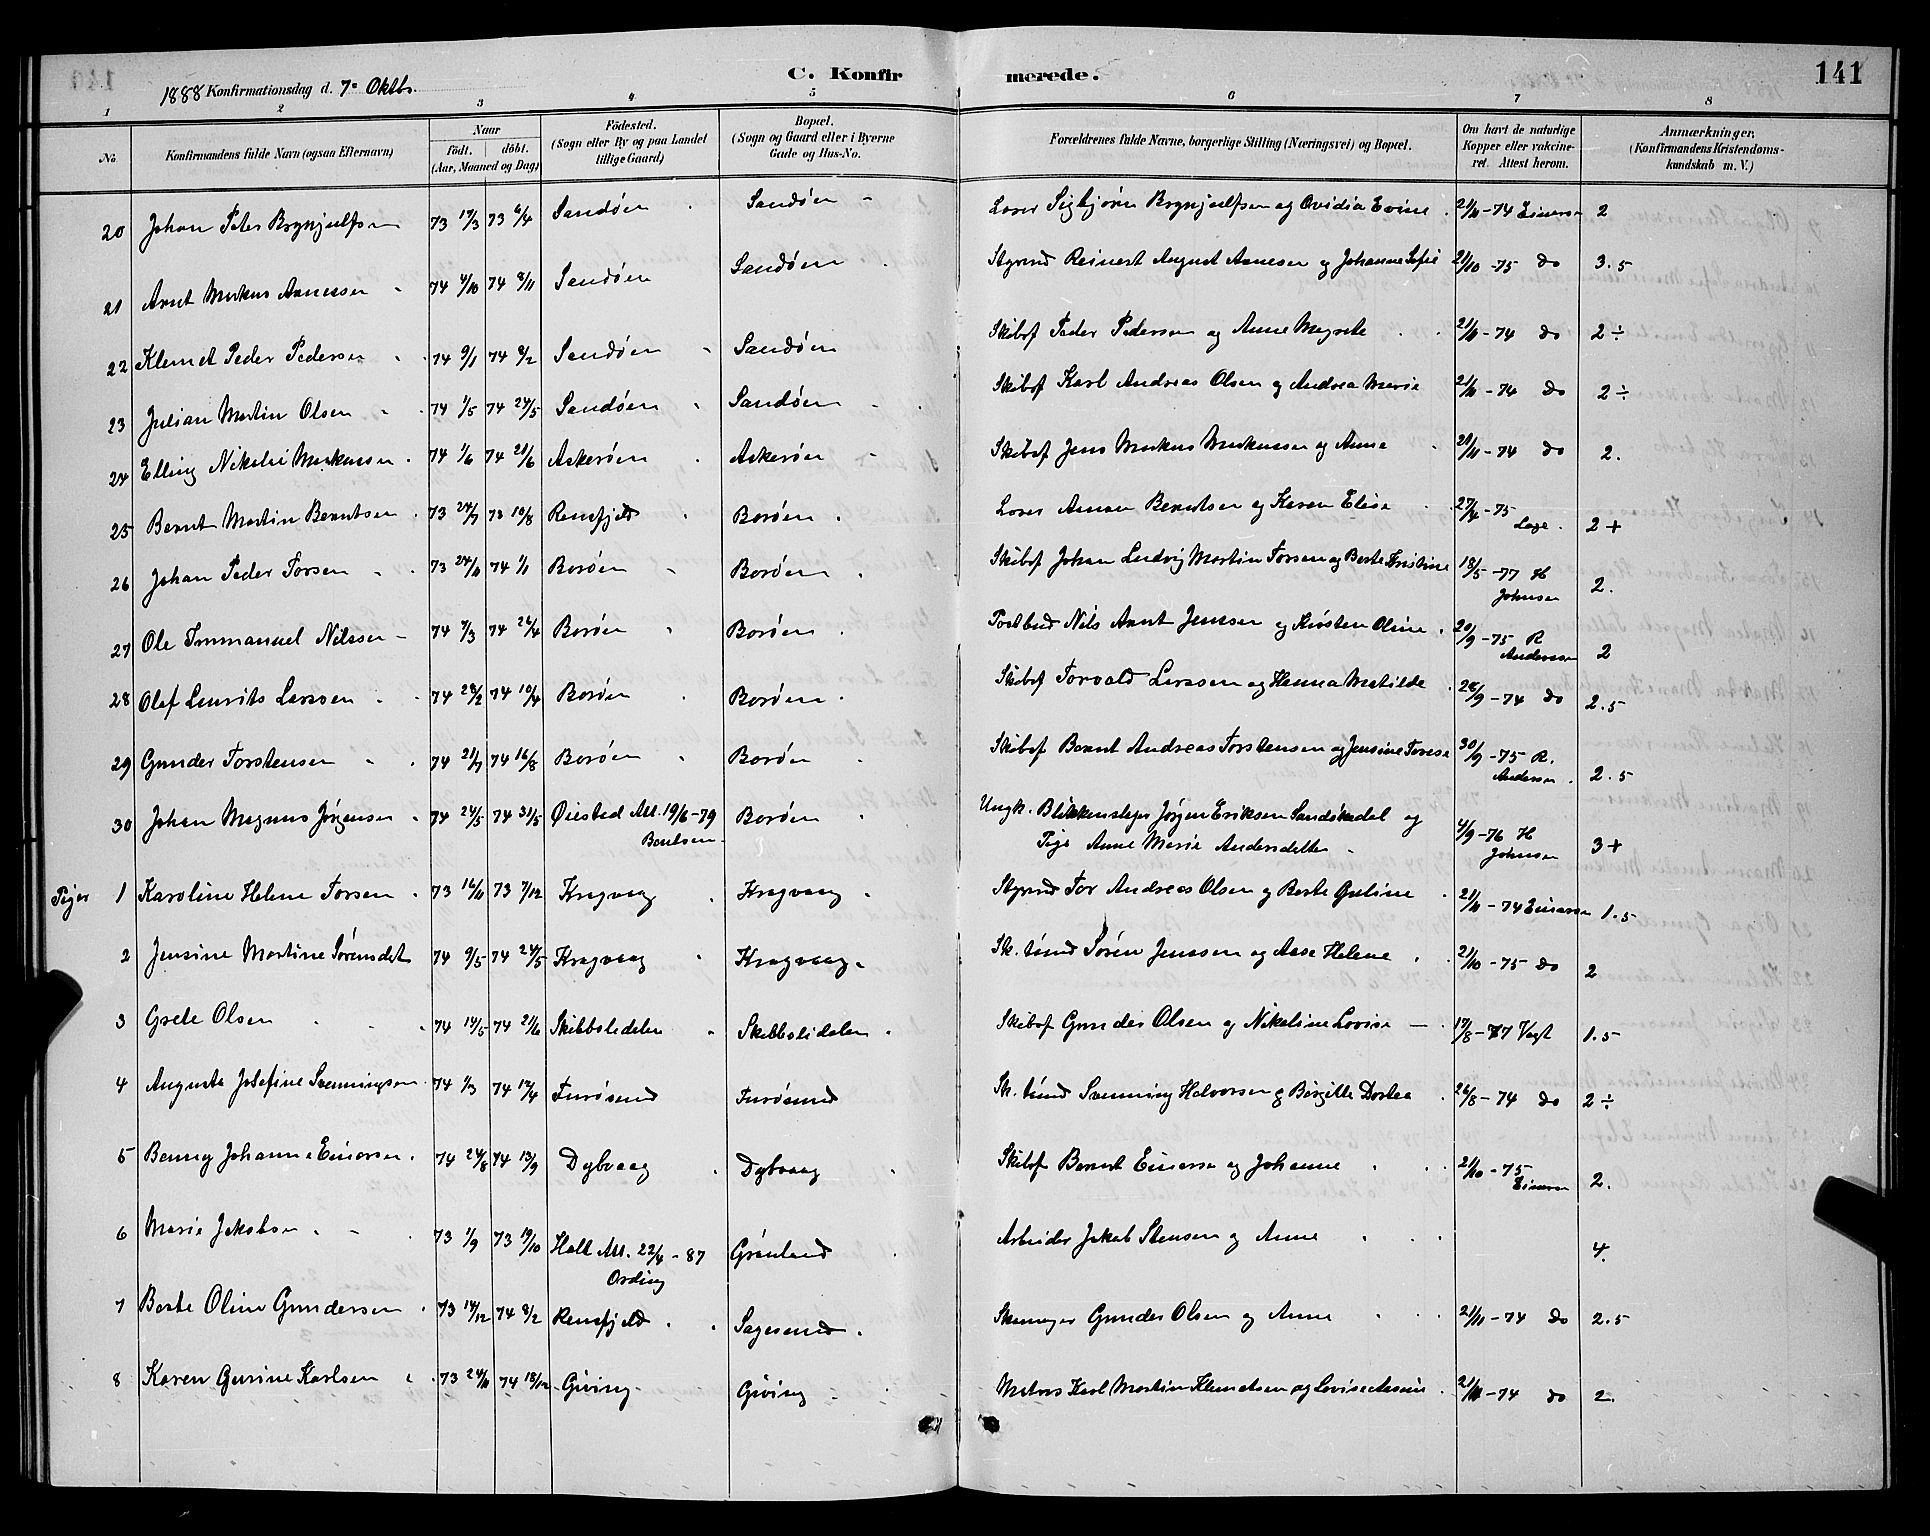 C. Konfirmerede. 141
1888 Konfirmationsdag d. 7de Oktbr.
1 2 3 4 5 6 7 8
No Konfirmandens fulde Navn (ogsaa Efternavn) Naar födt. döbt. (Aar, Maaned og Dag) Födested. (Sogn eller By og paa Landet tillige Gaard) Bopæl. (Sogn og Gaard eller i Byerne Gade og Hus-No. Forældrenes fulde Navne, borgerlige Stilling (Næringsvei) og Bopæl. Om havt de naturlige Kopper eller vakcineret. Attest herom. Anmærkninger. (Konfirmandens Kristendomskundskab m. V.)
20 Johan Peter Brynjulfsen 73 17/3 73 6/4 Sandøen Sandøen Sigbjørn Brynjulfsen og Ovidia Evine 21/11-74 Einersen 2
21 Arnt Markus Arnesen 74 4/10 74 8/11 Sandøen Sandøen Styrmd Reinert August Arnesen og Johanne Sofie 21/10-75 do 3.5
22 Klemet Peder Pedersen 74 9/1 74 8/2 Sandøen Sandøen Skibsf Peder Pedersen og Anne Magrete 21/11-74 do 2÷
23 Julian Martin Olsen 74 1/5 74 24/5 Sandøen Sandøen Skibsf Karl Andreas Olsen og Andrea Marie 21/11-74 do 2÷
24 Elling Nikolai Markussen 74 1/6 74 21/6 Askerøen Askerøen Skibsf Jens Markus Markussen og Anne 21/11-74 do 2.
25 Bernt Martin Berntsen 73 24/7 73 10/8 Ramsfjeld Borøen Berntsen og Karen Elise 27/4-75 2+
26 Johan Peder Torsen 73 24/11 74 1/1 Borøen Borøen Skibsf Johan Ludvig Martin Torsen og Berte Kristine 18/5-77 H Johnsen 2.
27 Ole Immanuel Nilssen 74 7/3 74 26/4 Borøen Borøen Postbud Nils Arnt Jenssen og Kirsten Oline 20/9-75 R Andersen 2
28 Olaf Laurits Larssen 74 28/2 74 10/4 Borøen Borøen Skibsf Torvald Larssen og Hanna Matilde 28/9-74 do 2.5
29 Gunder Torstensen 74 21/7 74 16/8 Borøen Borøen Skibsf Bernt Andreas Torstensen og Jensine Torese 30/9-75 R. Andersen 2.5
30 Johan Magnus Jørgensen 74 24/5 74 31/5 Øiested Att. 19/6-79 Bentsen Borøen Ungk. Blikkenslager Jørgen Eriksen Sandskedal og Pige Anne Marie Andersdatter 4/9-76 H Johnsen 3+
Piger 1 Karoline Helene Torsen 73 16/11 73 7/12 Kragvaag Kragvaag Styrmd Tor Andreas Olsen og Berte Guline 21/11-74 Einersen 1.5
2 Jensine Martine Sørensdat 74 9/5 74 24/5 Kragvaag Kragvaag Sk. tømd Søren Jenssen og Aase Helene 21/10-75 do 2
3 Grete Olsen 74 14/5 74 21/6 Skibbslidalen Skibbslidalen Skibsf Gunder Olsen og Nikoline Lovise 17/8-77 Vogt 1.5
4 Augusta Josefine Svenningsen 74 1/3 74 12/4 Furøsund Furøsund Sk. tømd Svenning Halvorsen og Birgitte Dortea 26/8-74 do 2÷
5 Benny Johanne Einersen 74 24/8 74 13/9 Dybvaag Dybvaag Skibsf Bernt Einersen og Johanne 21/10-75 Einersen 2.
6 Marie Jakobsen 73 1/9 73 19/10 Holt Att. 22/4-87 Ording Grønland Arbeider Jakob Stensen og Anne 4.
7 Berte Oline Gundersen 73 14/12 74 8/2 Ramsfjeld Sagesund Skomager Gunder Olsen og Anne 21/11-74 do 2.5
8 Karen Gurine Karlsen 73 24/11 74 18/12 Giving Giving Matros Karl Martin Klemetsen og Lovise 21/11-74 do 2.